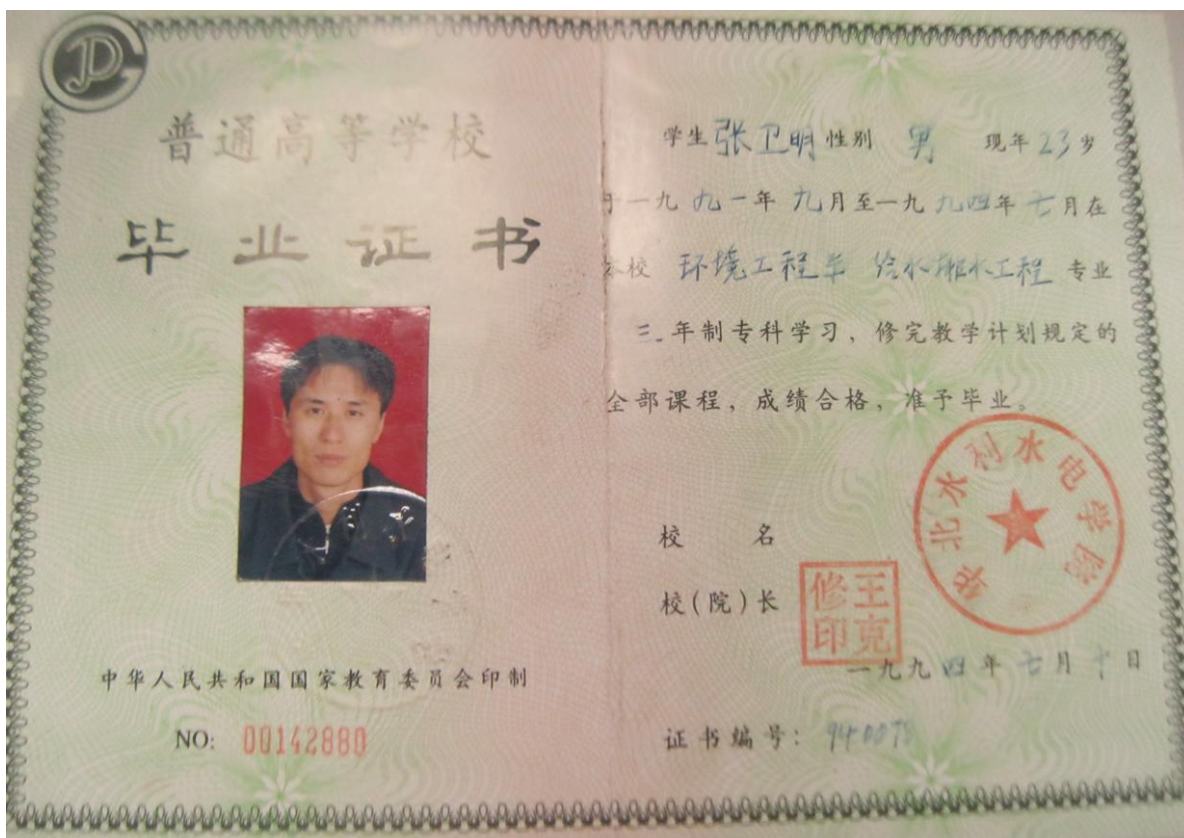 普通高等学校
毕业证书
中华人民共和国国家教育委员会印制
NO: 00142880
学生 张卫明 性别 男 现年 23 岁
于一九九一年九月至一九九四年七月在
本校 环境工程系 给水排水工程 专业
三年制专科学习,修完教学计划规定的
全部课程,成绩合格,准予毕业。
华北水利水电学院
校 名
校(院)长
王克修印
一九九四年七月十日
证书编号: